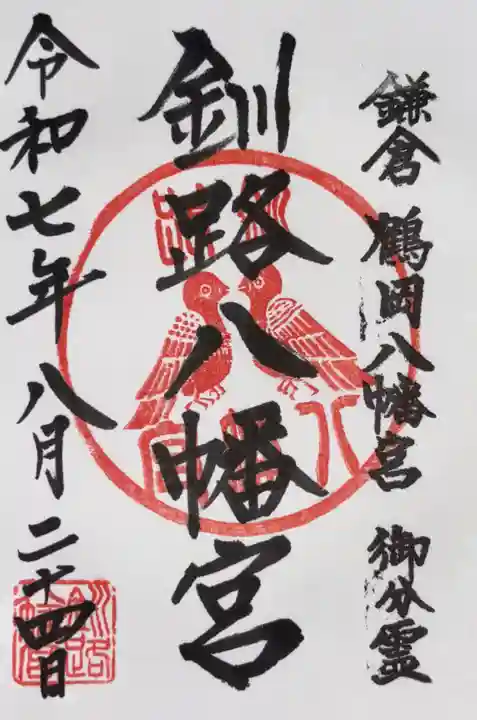 鎌倉 鶴岡八幡宮 御分霊
釧路八幡宮
令和七年八月二十四日